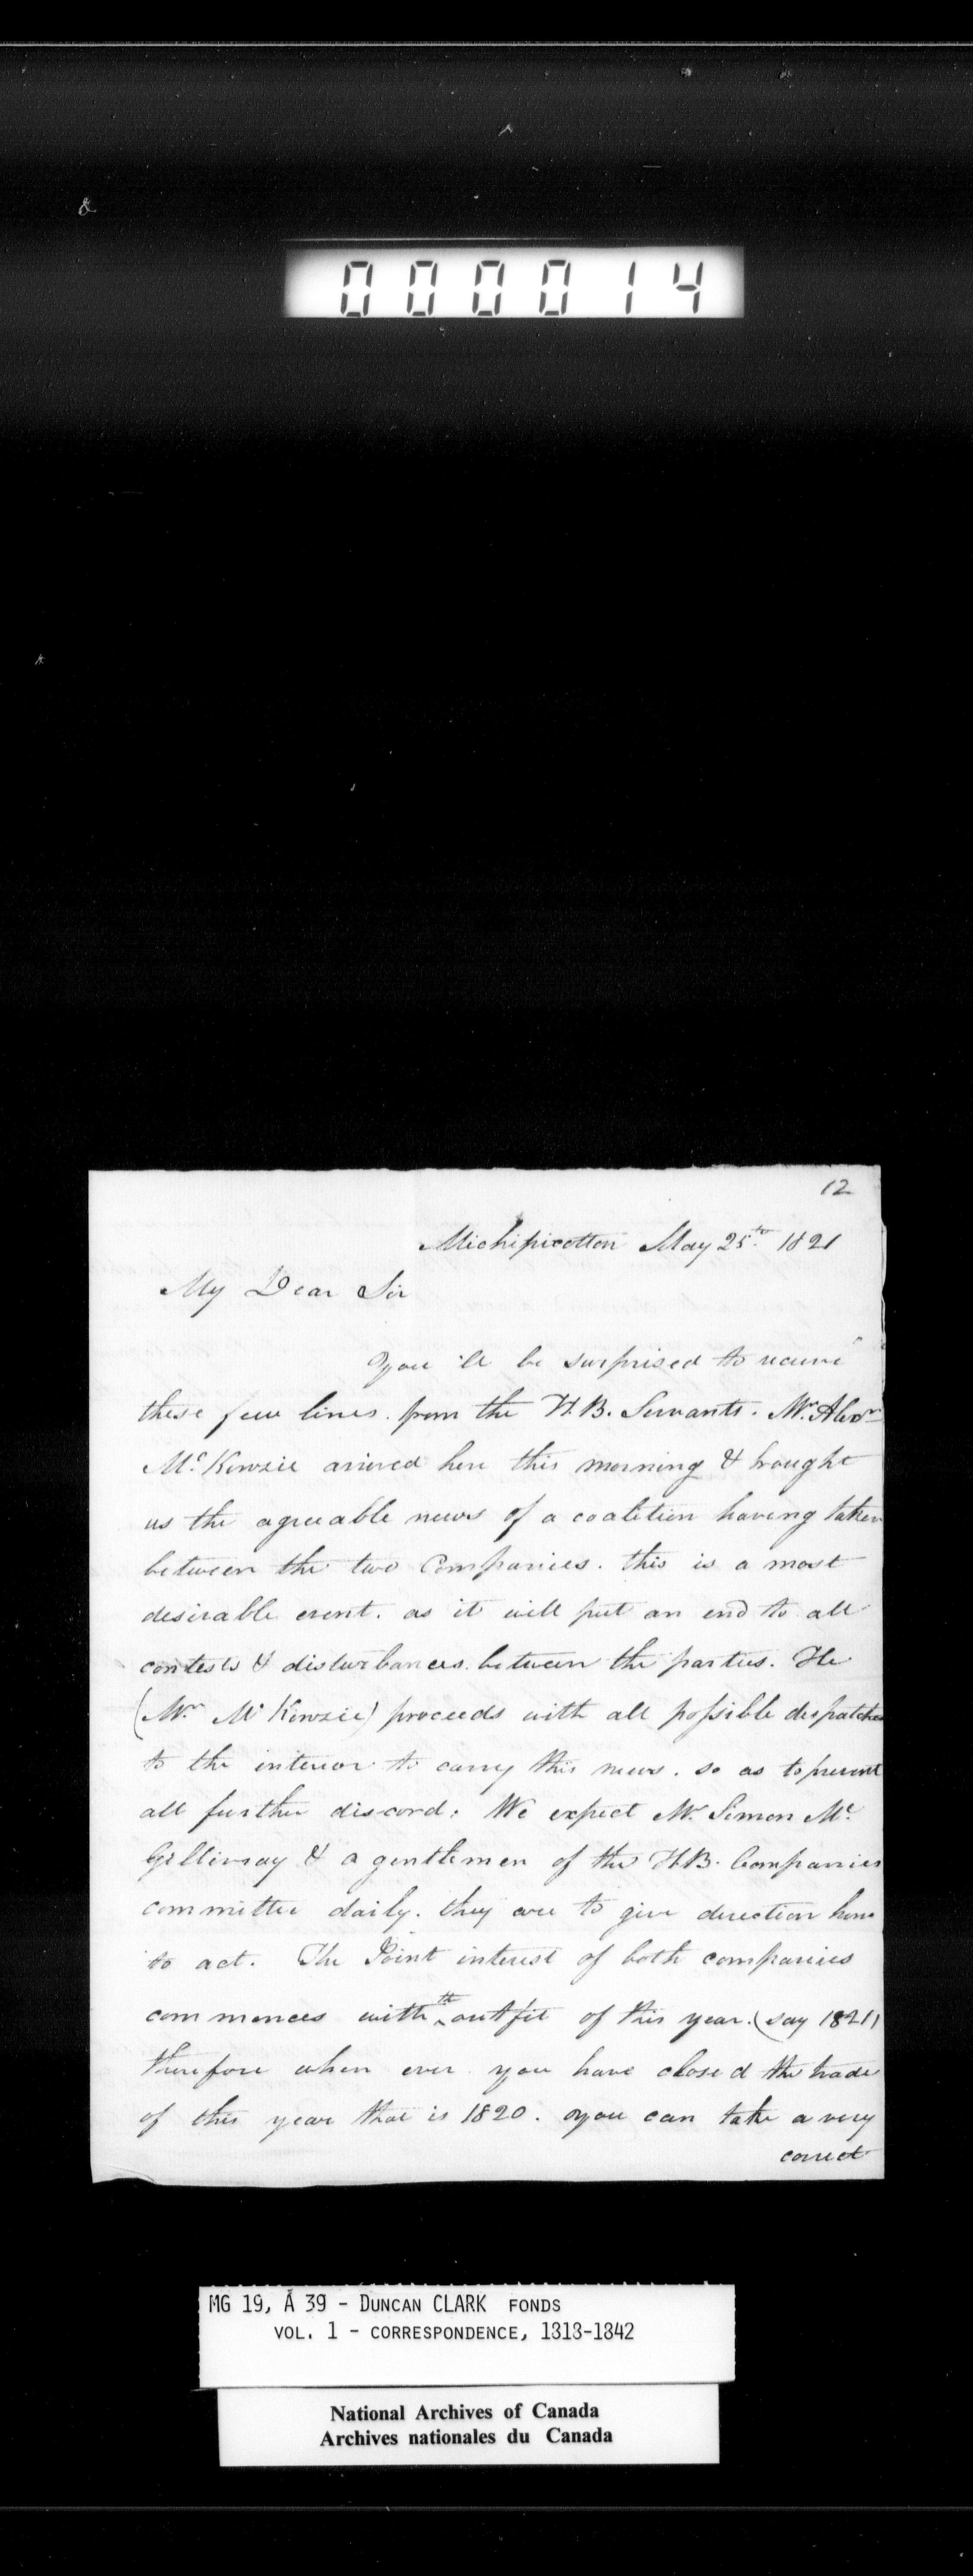 000014
12
Michipicotton May 25th 1821
My Dear Sir
You 'll be surprised to receive
these few lines. from the H.B. Servants. Mr. Alexr
Mc Kenzie arrived here this morning & brought
us the agreeable news of a coalition having taken
between the two Companies. this is a most
desirable event. as it will put an end to all
contests & disturbances between the parties. He
(Mr Mc Kenzie) proceeds with all possible despatches
to the interior to carry this news. so as to prevent
all further discord: We expect Mr Simon Mc
Gillivray & a gentlemen of the H.B. Companies
committee daily. they are to give direction how
to act. The Joint interest of both companies
commences with the outfit of this year. (say 1821)
therefore when ever you have closed the trade
of this year that is 1820. you can take a very
correct
MG 19, A 39 - DUNCAN CLARK FONDS
VOL. 1 - CORRESPONDENCE, 1813-1842
National Archives of Canada
Archives nationales du Canada